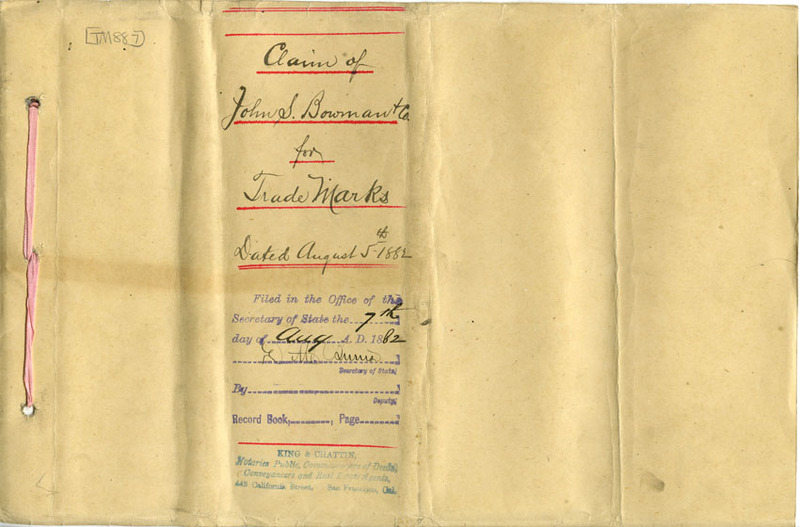 [TM887]
Claim of
John S. Bowman & Co.
for
Trade Marks
Dated August 5th 1882
Filed in the Office of the
Secretary of State the 7th
day of Aug A. D. 1882
Secretary of State,
By
Deputy,
Record Book, Page
KING & CHATTIN,
Notaries Public, Commissioners of Deeds,
Conveyancers and Real Estate Agents,
443 California Street, San Francisco, Cal.